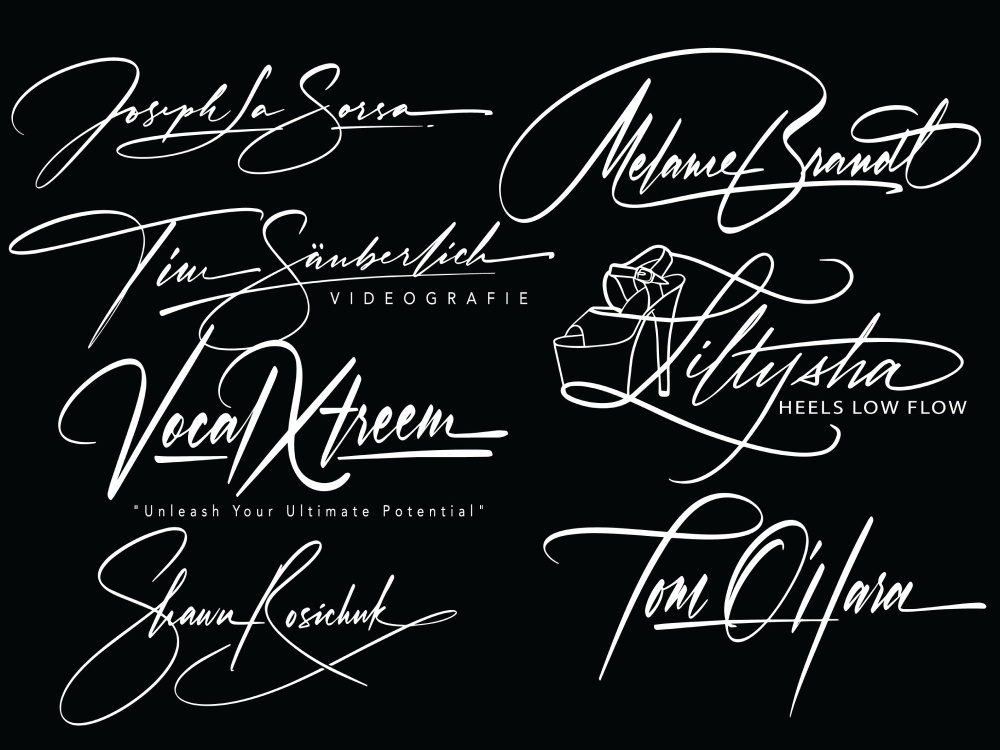 Joseph La Sorsa
Melanie Brandt
Tim Säuberlich
VIDEOGRAFIE
Liltysha
HEELS LOW FLOW
Vocal Xtreem
"Unleash Your Ultimate Potential"
Tom O'Hara
Shawn Rosichuk